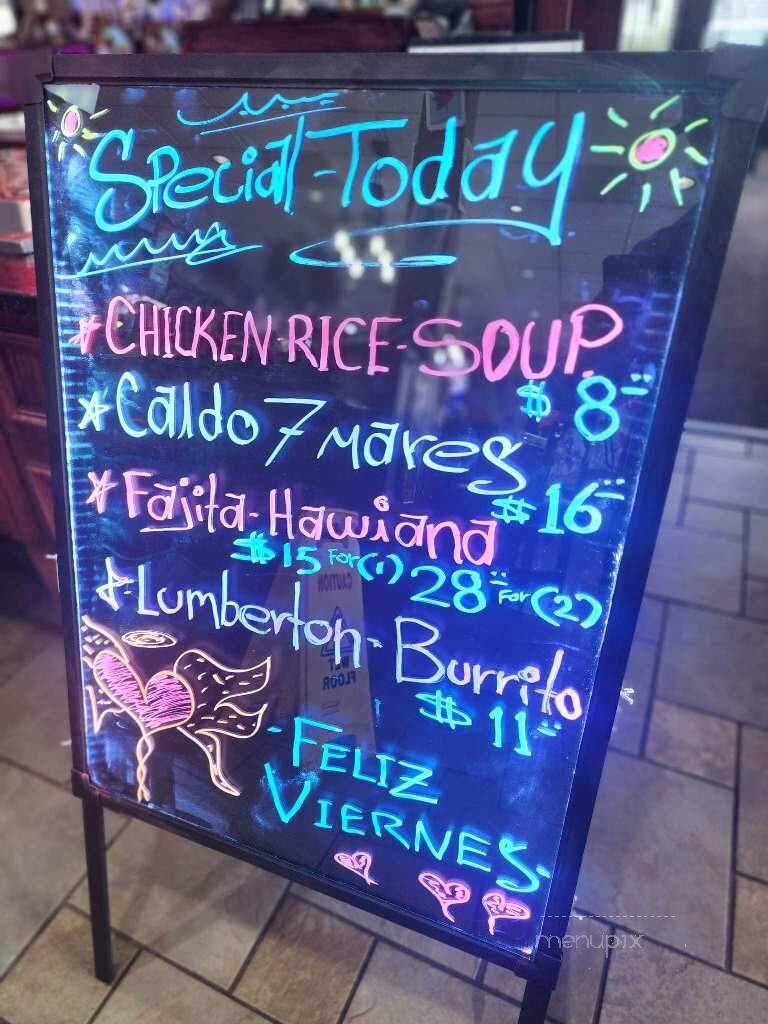 Special-Today
*CHICKEN-RICE-SOUP
$ 8
*Caldo 7 mares
$ 16
*Fajita-Hawiana
$15 For(1) 28 For(2)
*Lumberton-Burrito
$ 11
-FELIZ
VIERNES-
CAUTION
WET
FLOOR
menupix